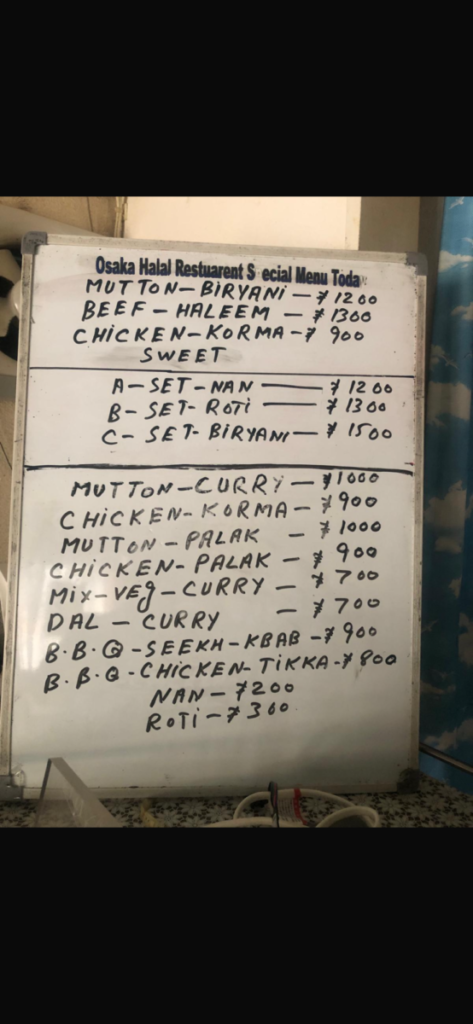 Osaka Halal Restuarent S ecial Menu Toda
MUTTON-BIRYANI-¥1200
BEEF-HALEEM - ¥1300
CHICKEN-KORMA-¥ 900
SWEET
A-SET-NAN — ¥1200
B-SET-ROTI — ¥1300
C-SET-BIRYANI-¥1500
MUTTON-CURRY-¥1000
CHICKEN-KORMA-¥900
MUTTON-PALAK - ¥1000
CHICKEN-PALAK - ¥900
Mix-VEg-CURRY - ¥700
DAL-CURRY - ¥700
B.B.Q-SEEKH-KBAB-¥900
B.B.Q-CHICKEN-TIKKA-¥800
NAN-¥200
ROTI-¥300